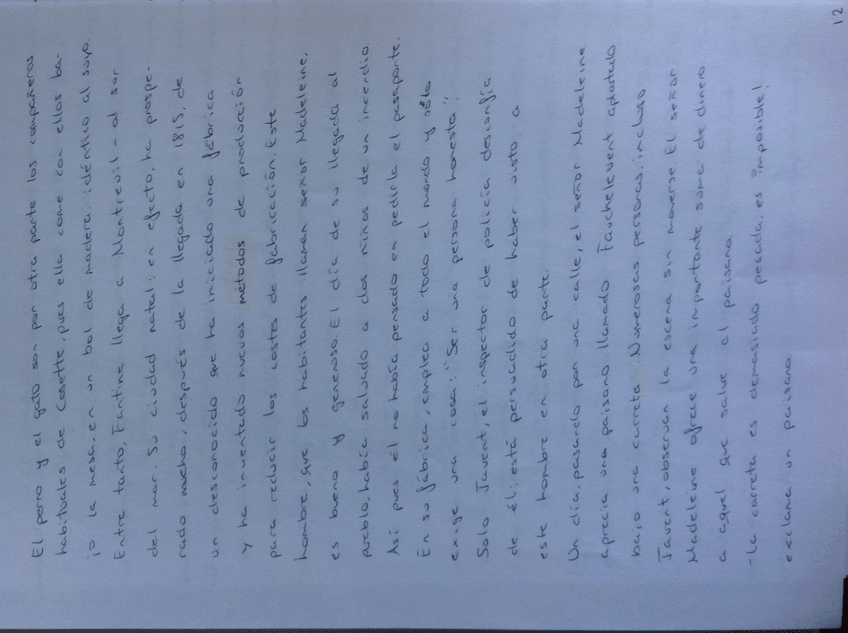 El perro y el gato son por otra parte los compañeros
habituales de Cosette, pues ella come con ellos ba-
jo la mesa, en un bol de madera idéntico al suyo.
Entre tanto, Fantine llega a Montreuil - al sur
del mar. Su ciudad natal: en efecto, ha prospe-
rado mucho, después de la llegada en 1815, de
un desconocido que ha iniciado una fábrica
y ha inventado nuevos métodos de producción
para reducir los costes de fabricación. Este
hombre, que los habitantes llaman señor Madeleine,
es bueno y generoso. El día de su llegada al
pueblo, había salvado a dos niños de un incendio.
Así pues él no había pensado en pedirle el pasaporte.
En su fábrica, emplea a todo el mundo y sólo
exige una cosa: "Ser una persona honesta".
Solo Javert, el inspector de policia desconfía
de él: está persuadido de haber visto a
este hombre en otra parte.
Un día, pasando por una calle, el señor Madeleine
aprecia una paisano llamado Fauchelevent aplastado
bajo una carreta. Numerosas personas, incluso
Javert, observan la escena sin moverse. El señor
Madeleine ofrece una importante suma de dinero
a aquel que salve el paisano.
-La carreta es demasiado pesada, es imposible!
exclama un paisano.
12